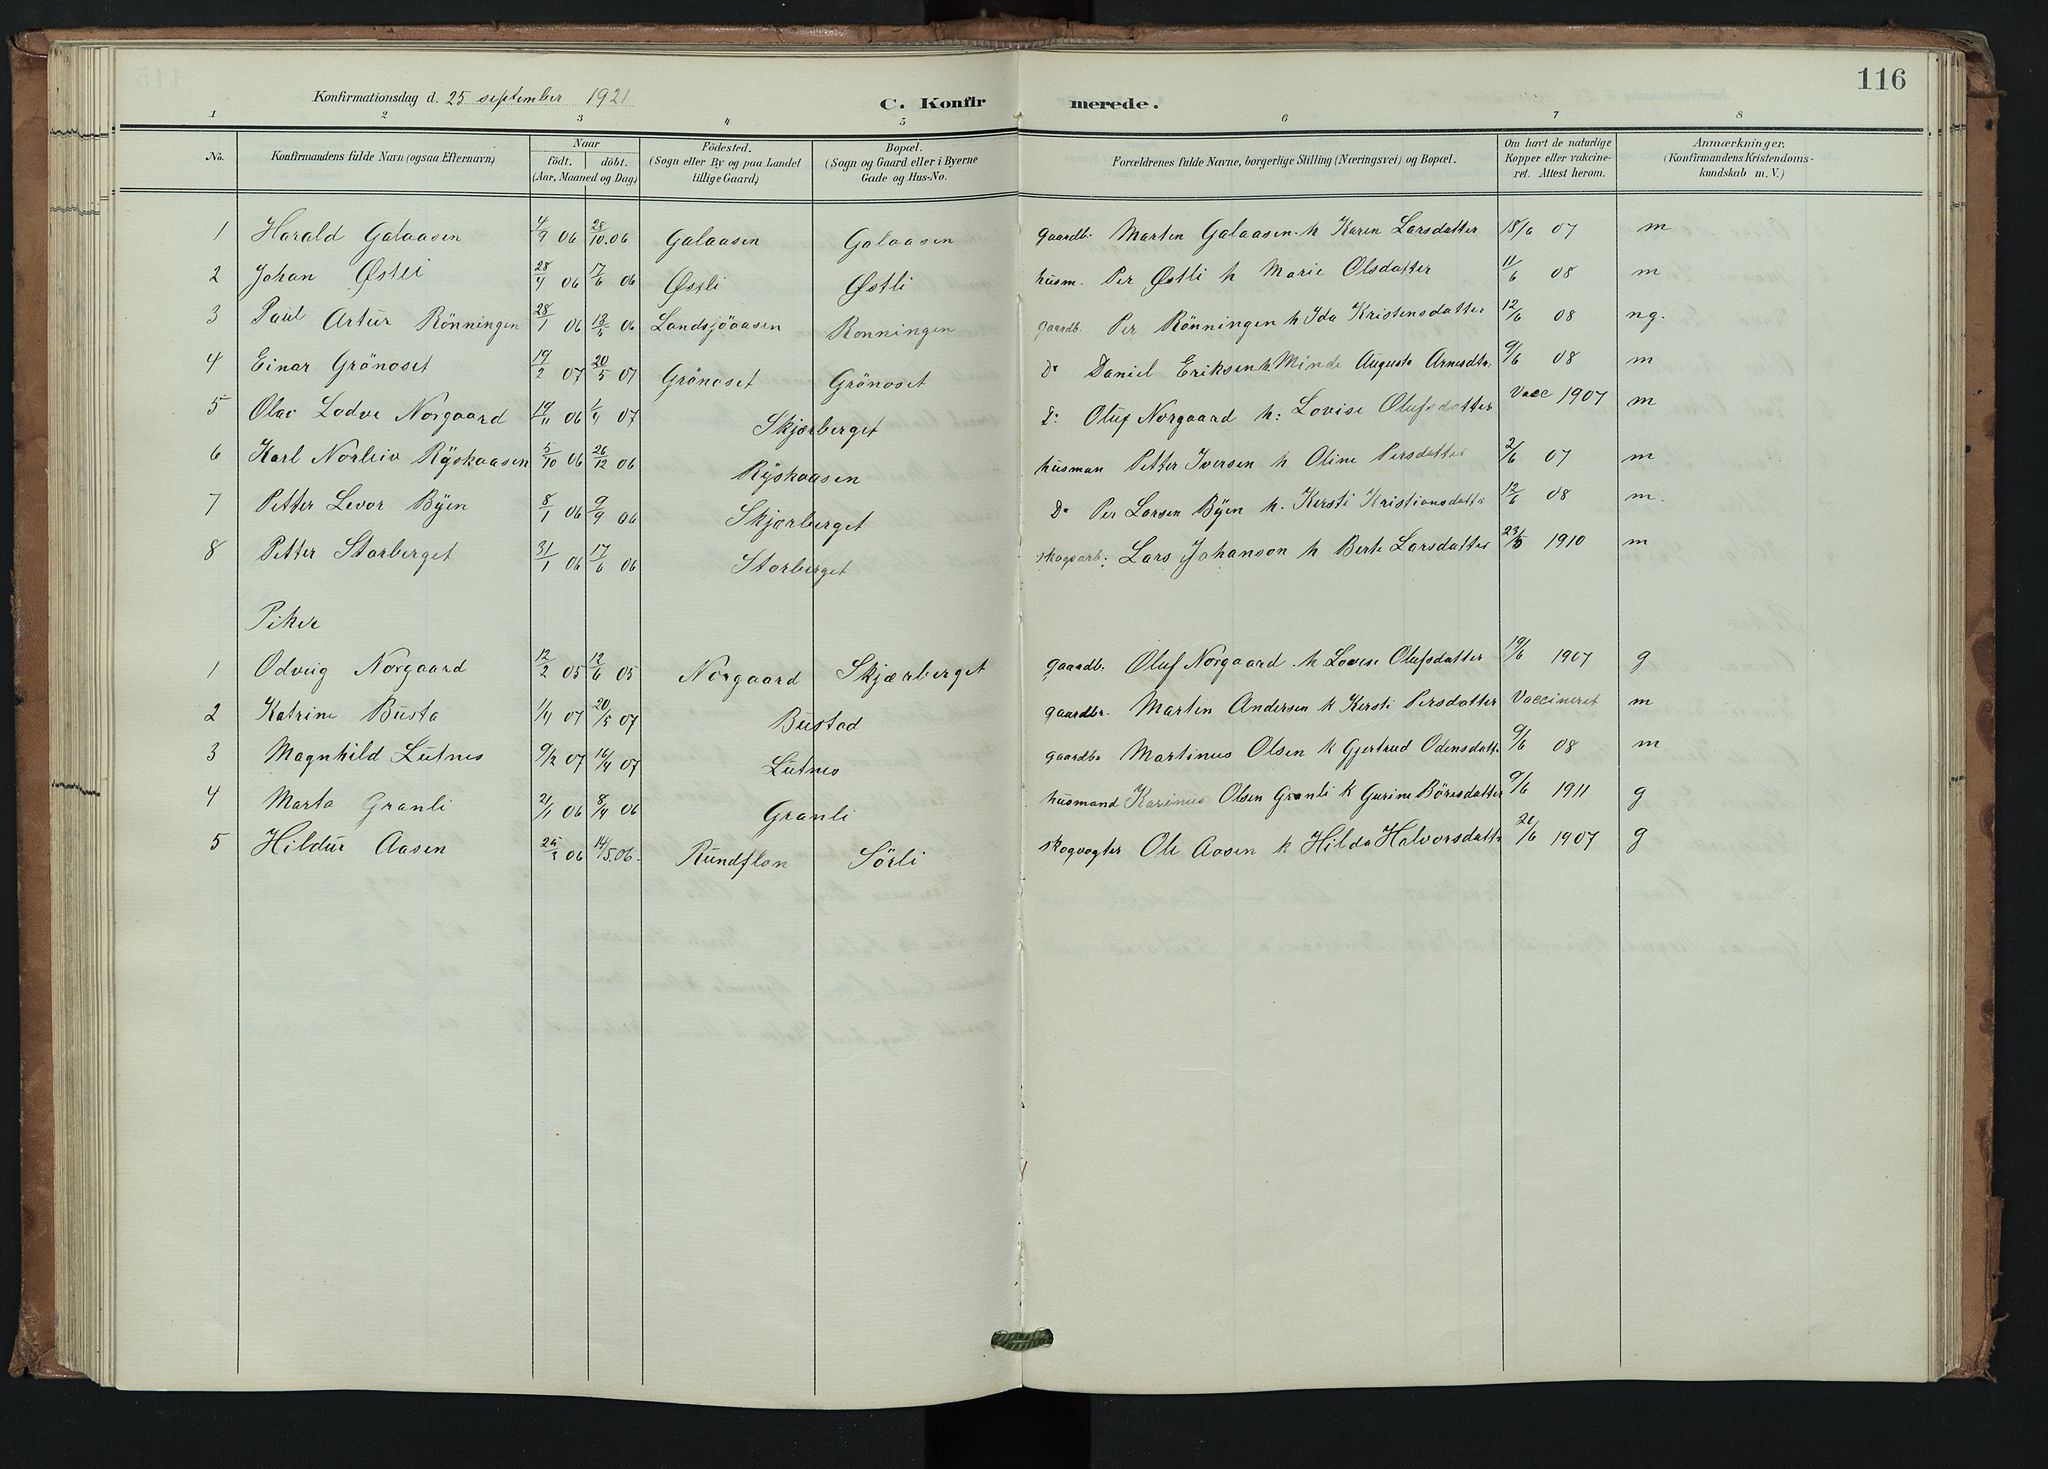 116
Konfirmationsdag d. 25 september 1921
C. Konfirmerede.
1 2 3 4 5 6 7 8
No. Konfirmandens fulde Navn (ogsaa Efternavn) Naar født. døbt. (Aar, Maaned og Dag) Fødested. (Sogn eller By og paa Landet tillige Gaard) Bopæl. (Sogn og Gaard eller i Byerne Gade og Hus-No. Forældrenes fulde Navne, borgerlige Stilling (Næringsvei) og Bopæl. Om havt de naturlige Kopper eller vakcineret. Attest herom. Anmærkninger. (Konfirmandens Kristendomskundskab m. V.)
1 Harald Galaasen 4/9 06 28/10.06 Galaasen Galaasen gaardb. Marten Galaasen h Karen Larsdatter 18/6 07 m
2 Johan Østli 28/4 06 17/6 06 Østli Østli husm. Per Østli h Marie Olsdatter 11/6 08 m
3 Paul Artur Rönningen 28/1 06 13/5 06 Landsjöaasen Rönningen gaardb. Per Rönningen h Ida Kristensdatter 12/6 08 ng.
4 Einar Grönoset 19/2 07 20/5 07 Grönoset Grönoset Do Daniel Eriksen h Minde Augusta Arnesdtr. 9/6 08 m
5 Olav Lodve Norgaard 19/11 06 1/4 07 Skjærberget D: Oluf Norgaard h: Lovise Olufsdatter Vacc 1907 m
6 Karl Norleiv Ryskaasen 5/10 06 26/12 06 Ryskaasen husman Petter Iversen h Oline Persdatter 2/6 07 m
7 Petter Levor Byen 8/1 06 9/9 06 Skjærberget Do Per Larsen Byen h. Kersti Kristiansdattr 12/6 08 m.
8 Petter Storberget 31/1 06 17/6 06 Storberget skogsarb. Lars Johanson h Berte Larsdatter 23/5 1910 m
Piker
1 Odveig Norgaard 12/2 05 12/6 05 Norgaard Skjærberget gaardb. Oluf Norgaard h Lovise Olufsdatter 19/6 1907 g
2 Katrine Busta 1/4 07 20/5 07 Bustad gaardbr. Marten Andersen k Kersti Persdatter Vaccineret m
3 Magnhild Lutnes 9/2 07 16/4 07 Lutnes gaardbr Martinus Olsen k Gjertrud Odensdattr 9/6 08 m
4 Marta Granli 21/1 06 8/4 06 Granli husmand Karinus Olsen Granli k Gurine Böresdatter 9/6 1911 g
5 Hildur Aasen 06 14/5.06. Rundflon Sörli skogvogter Ole Aasen k Hilda Halvorsdattr 1907 g